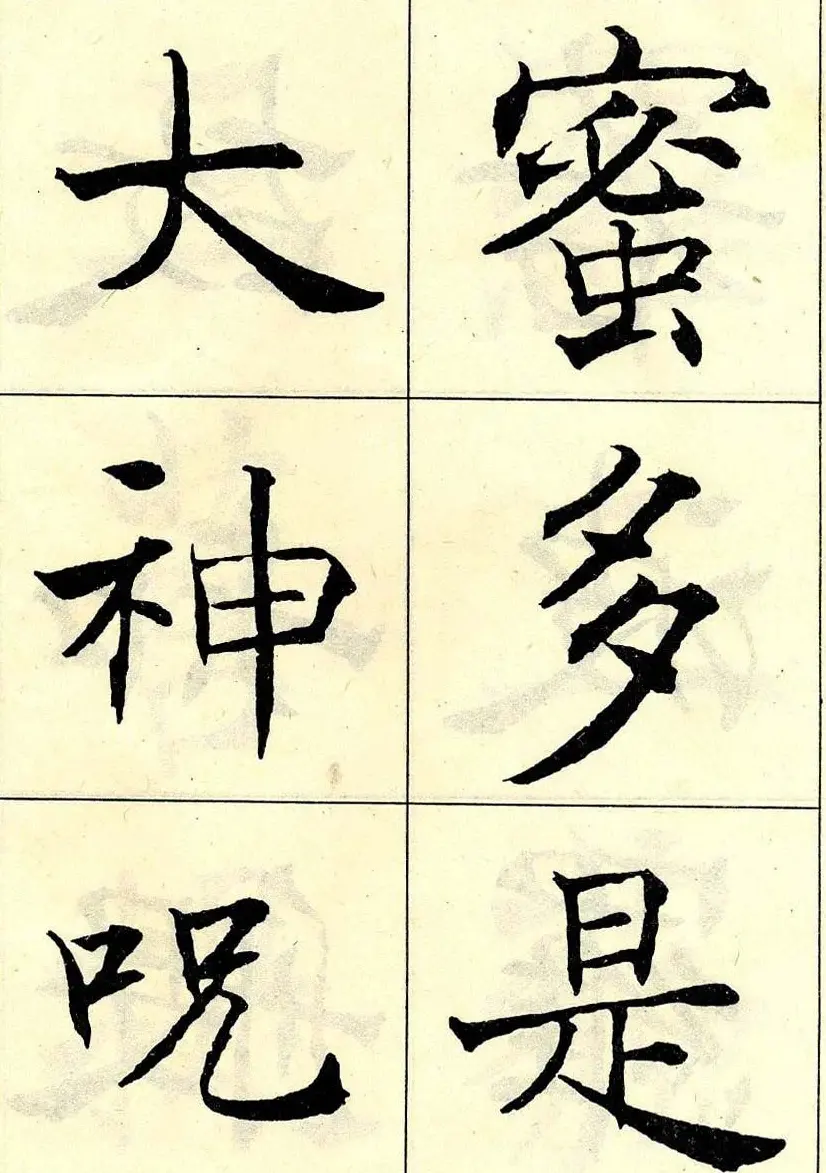 蜜多是
大神呪